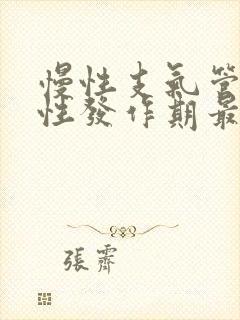 慢性支氣管
性發作期最
張霽